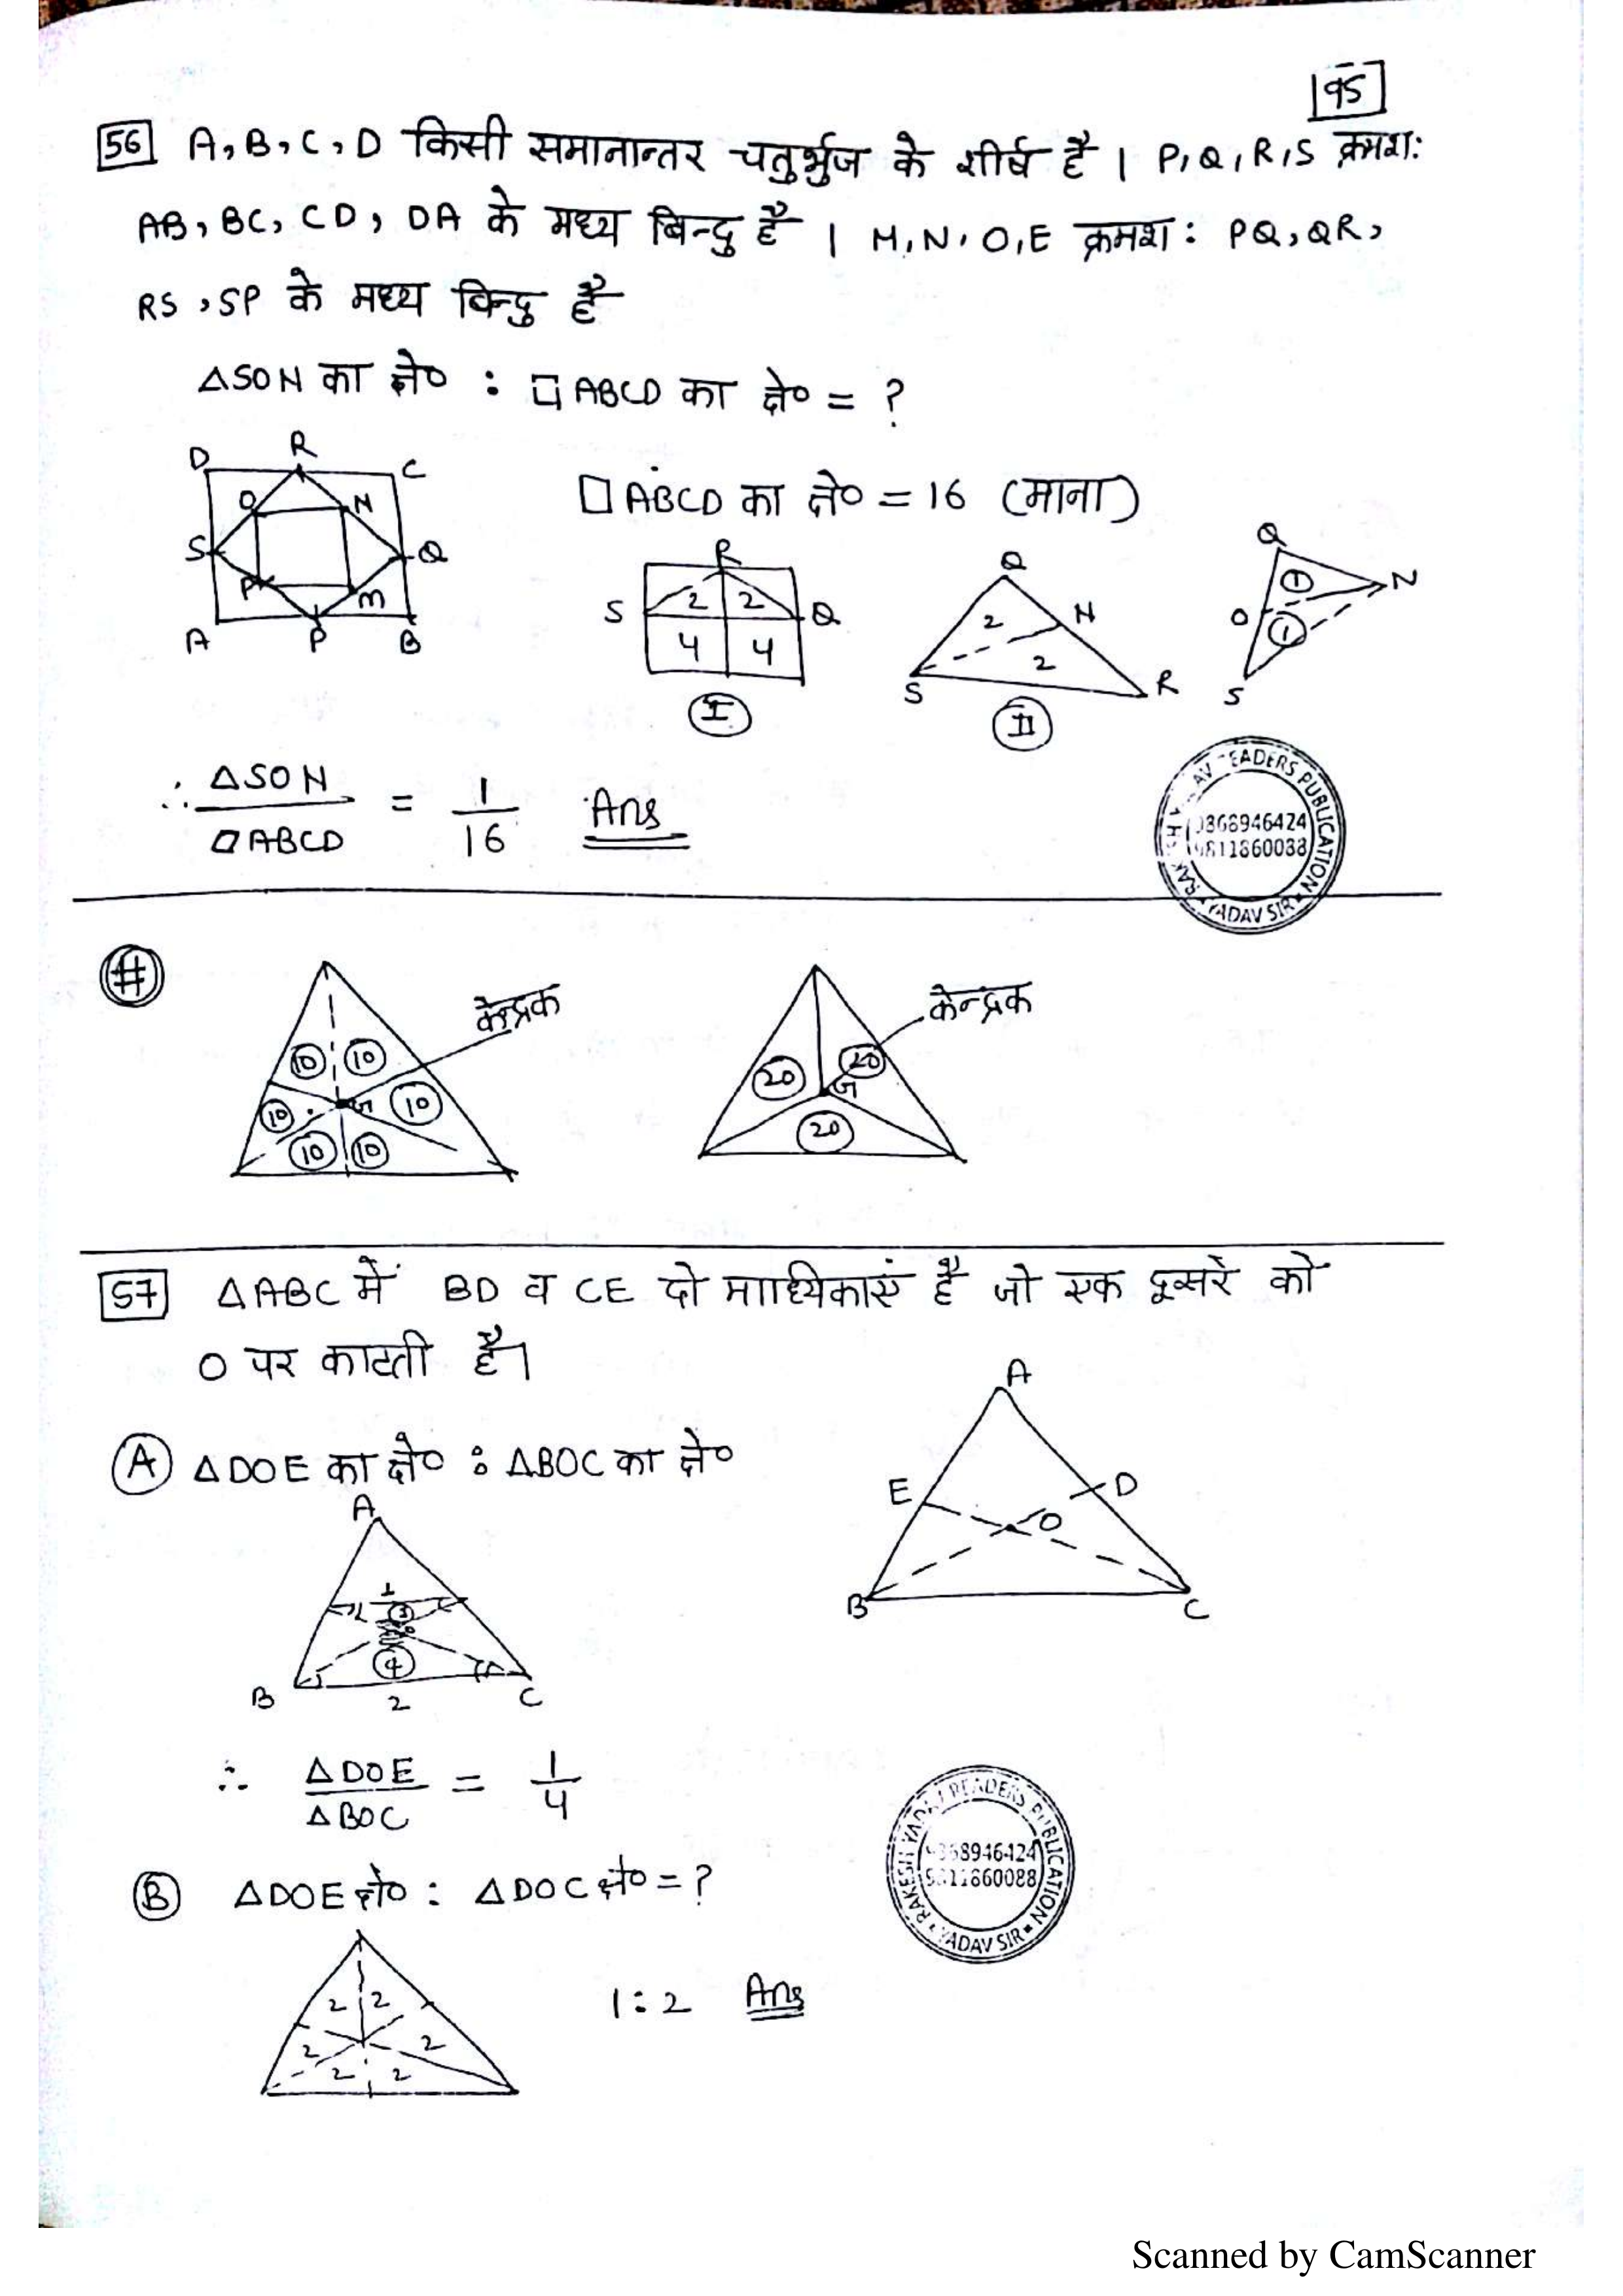 95
56 A, B, C, D किसी समानान्तर चतुर्भुज के शीर्ष है । P, Q, R, S क्रमश:
AB, BC, CD, DA के मध्य बिन्दु है । M, N, O, E क्रमश: PQ, QR,
RS, SP के मध्य बिन्दु है
△SON का क्षे० : □ABCD का क्षे० = ?
D R C
O N
S Q
P M
A P B
□ABCD का क्षे० = 16 (माना)
R
S 2 2 Q
4 4
I
Q
2 N
2
S R
II
Q
1 N
O 1
S
∴ △SON / □ABCD = 1/16 Ans
READERS PUBLICATION
YADAV SIR
#
केन्द्रक
10 10
10 G 10
10 10
केन्द्रक
20 20
G
20
57 △ABC में BD व CE दो माध्यिकाएं है जो एक दूसरे को
O पर काटती है।
A
E D
O
B C
A △DOE का क्षे० : △BOC का क्षे०
A
1
4
B 2 C
∴ △DOE / △BOC = 1/4
RAKESH YADAV READERS PUBLICATION
YADAV SIR
B △DOE क्षे० : △DOC क्षे० = ?
2 2
2 2
2 2
1 : 2 Ans
Scanned by CamScanner